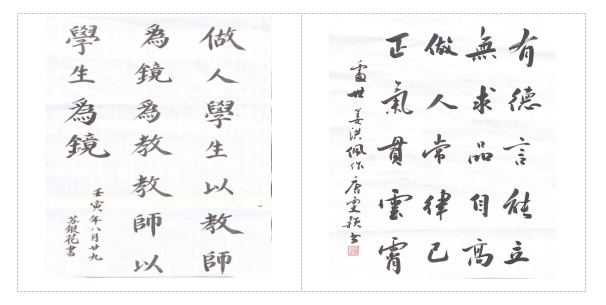 做人學生以教師
為鏡為教教師以
學生為鏡
壬寅年八月廿九
苏銀花書
有德言能立
無求品自高
做人常律己
正氣貫雲霄
處世 姜洪佩作 唐雯颖书